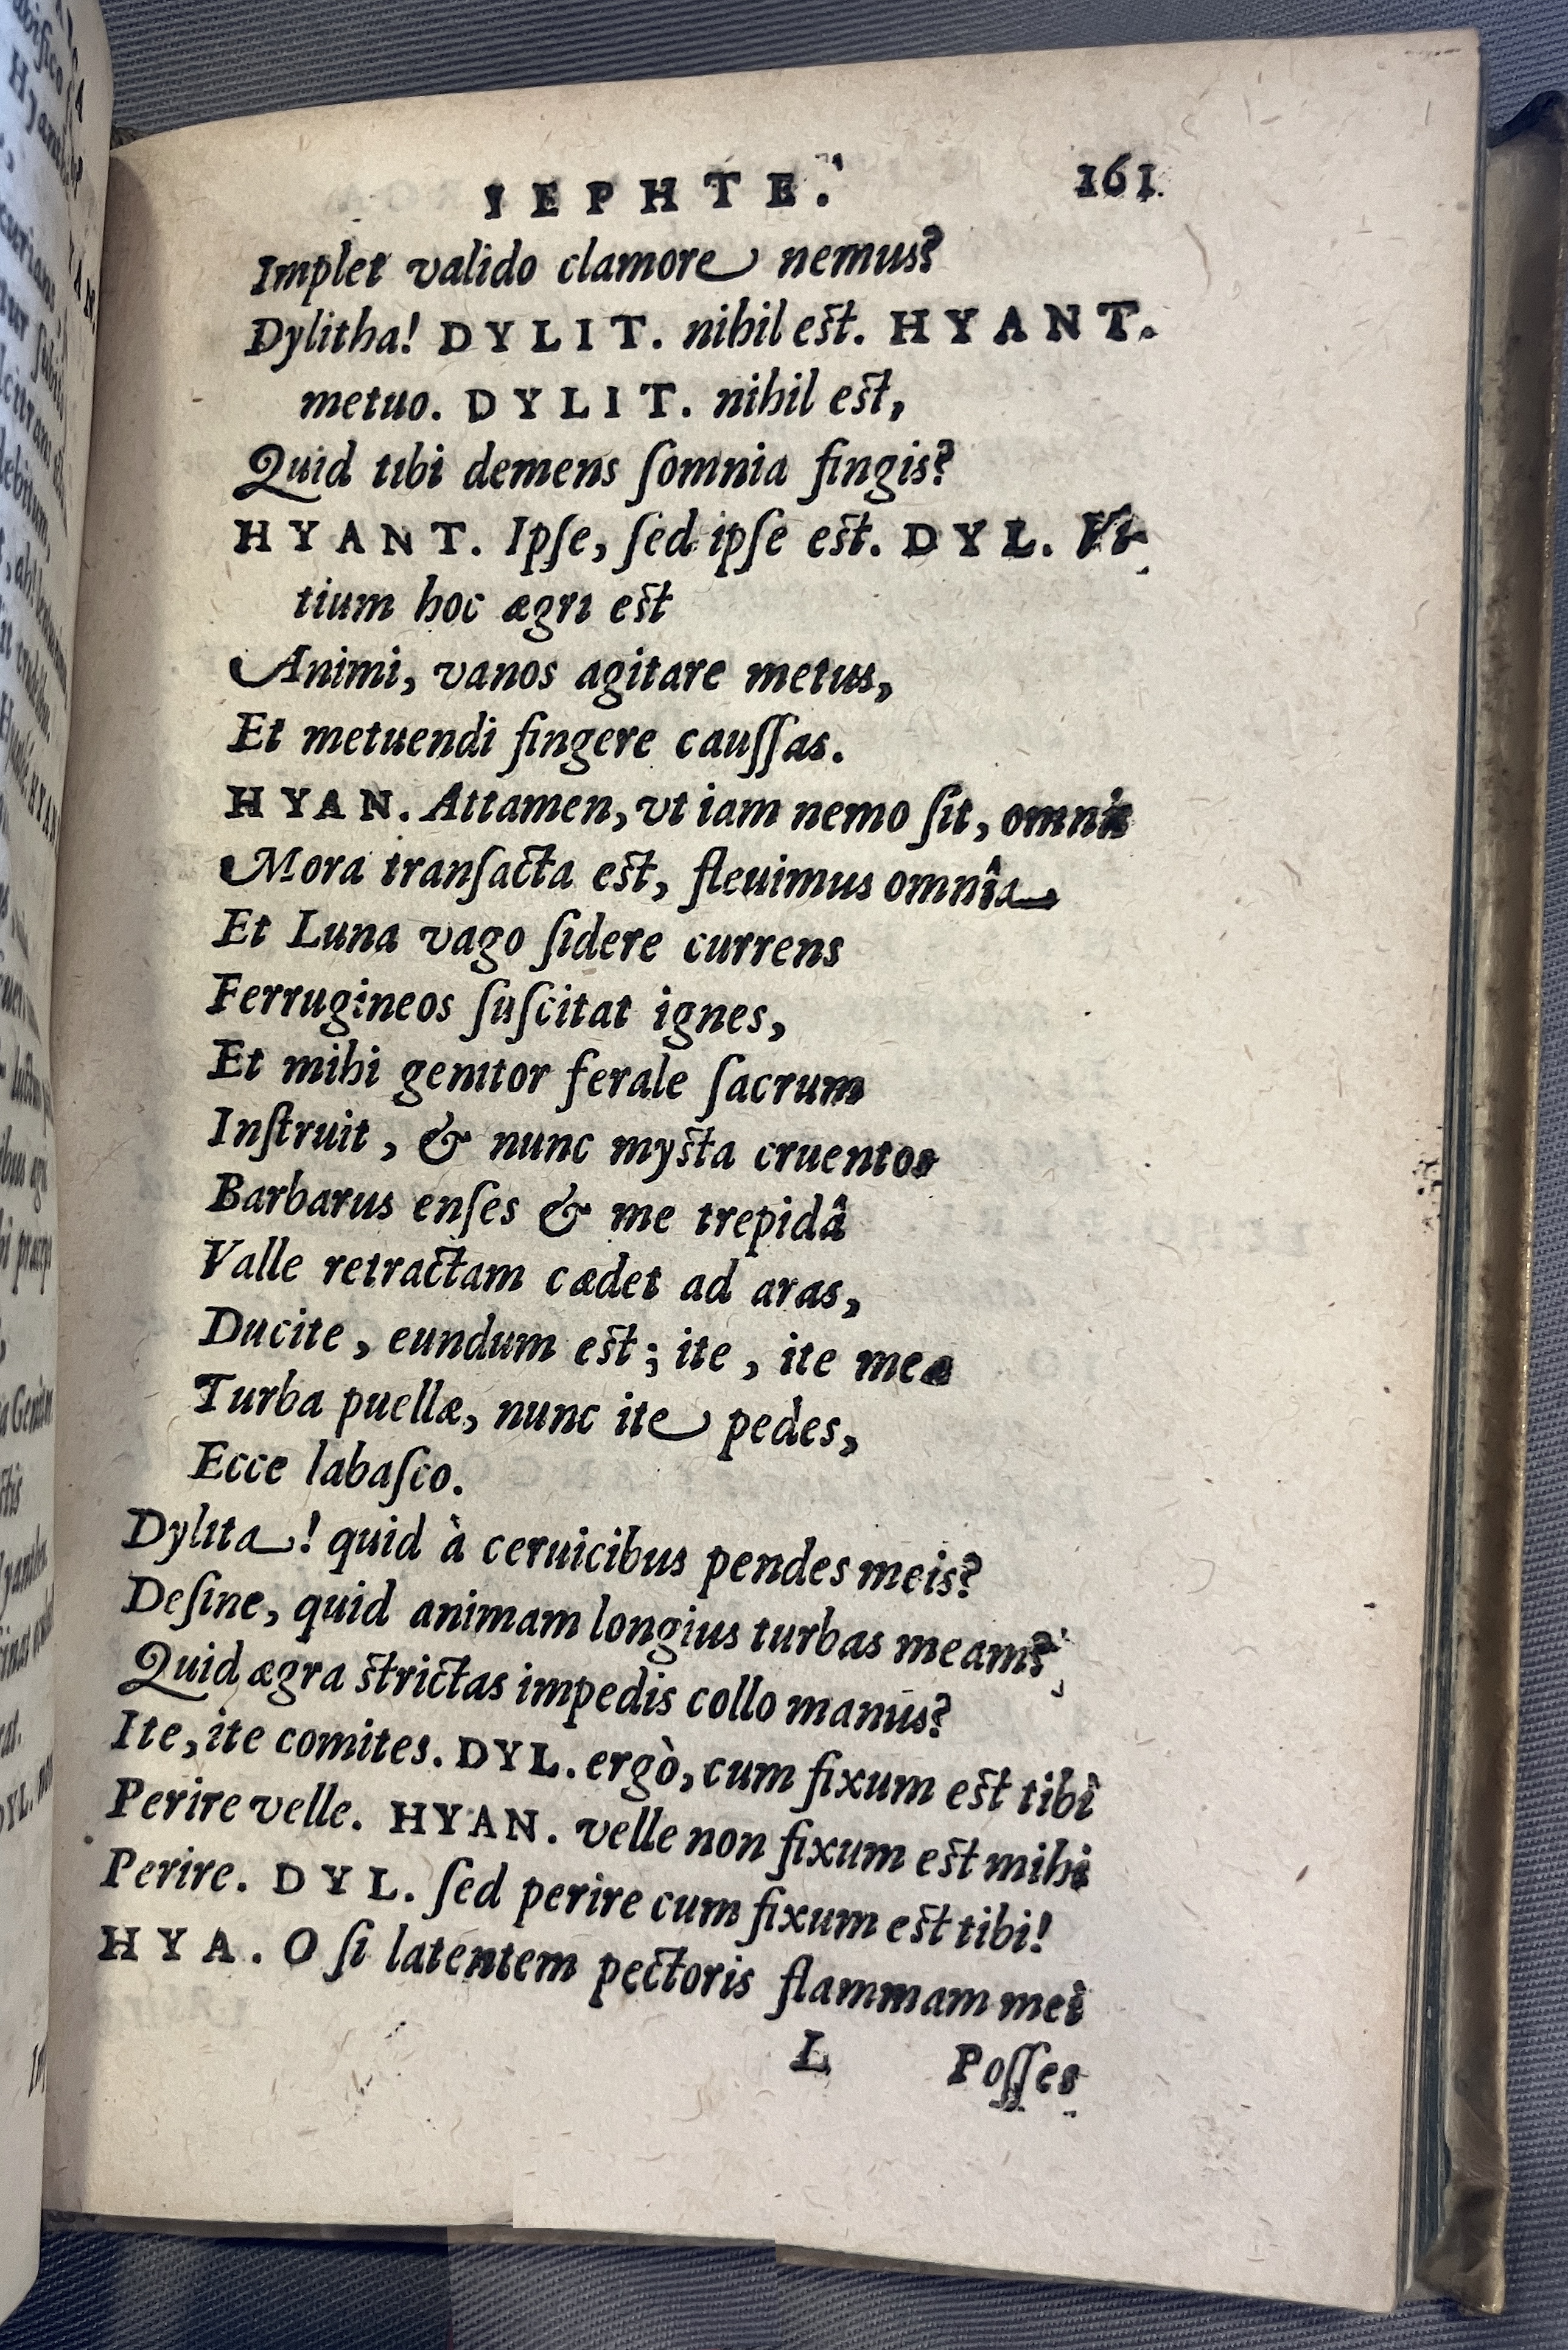 IEPHTE. 161
Implet valido clamore nemus?
Dylitha! DYLIT. nihil est. HYANT.
metuo. DYLIT. nihil est,
Quid tibi demens ſomnia fingis?
HYANT. Ipſe, ſed ipſe est. DYL. Vi-
tium hoc ægri est
Animi, vanos agitare metus,
Et metuendi fingere cauſſas.
HYAN. Attamen, vt iam nemo ſit, omnis
Mora tranſacta est, fleuimus omnia
Et Luna vago ſidere currens
Ferrugineos ſuſcitat ignes,
Et mihi genitor ferale ſacrum
Inſtruit, & nunc mysta cruentos
Barbarus enſes & me trepidâ
Valle retractam cædet ad aras,
Ducite, eundum est; ite, ite meæ
Turba puellæ, nunc ite pedes,
Ecce labaſco.
Dylita! quid à ceruicibus pendes meis?
Deſine, quid animam longius turbas meam?
Quid ægra strictas impedis collo manus?
Ite, ite comites. DYL. ergò, cum fixum est tibi
Perire velle. HYAN. velle non fixum est mihi
Perire. DYL. ſed perire cum fixum est tibi!
HYA. O ſi latentem pectoris flammam mei
L Poſſes